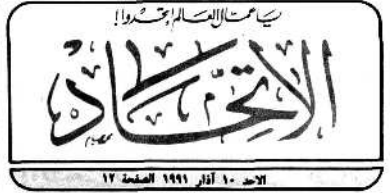 يا عمال العالم اتحدوا!
الاتحاد
الاحد ١٠ آذار ١٩٩١ الصفحة ١٢